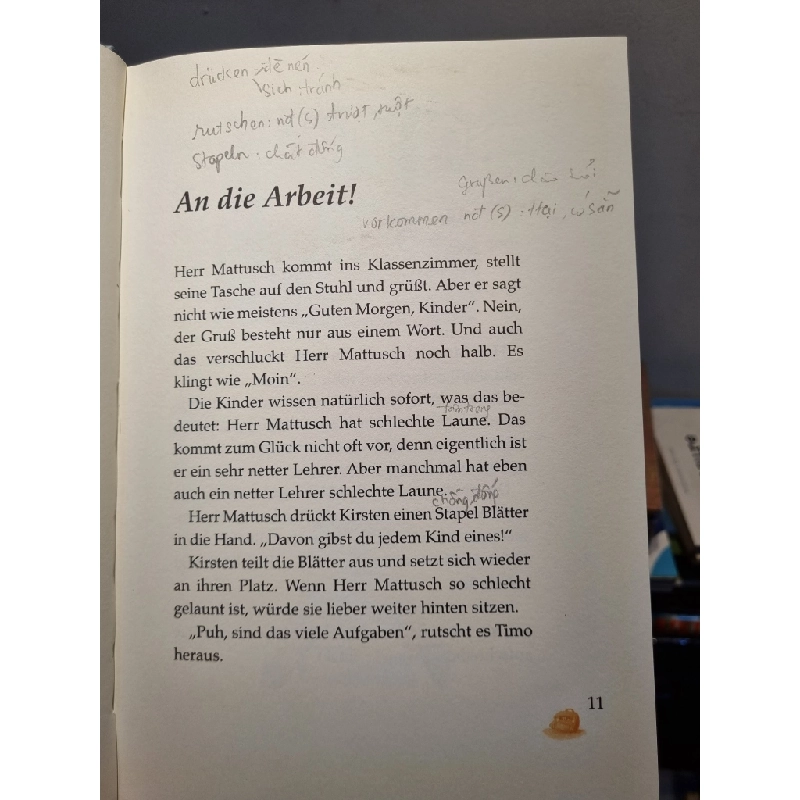 drücken : đè nén
sich : tránh
rutschen : nđ(s) trượt, tuột
stapeln : chất đống
An die Arbeit!
grußen : chào hỏi
vorkommen nđ(s) :
Herr Mattusch kommt ins Klassenzimmer, stellt
seine Tasche auf den Stuhl und grüßt. Aber er sagt
nicht wie meistens „Guten Morgen, Kinder“. Nein,
der Gruß besteht nur aus einem Wort. Und auch
das verschluckt Herr Mattusch noch halb. Es
klingt wie „Moin“.
Die Kinder wissen natürlich sofort, was das be-
deutet: Herr Mattusch hat schlechte Laune. Das
kommt zum Glück nicht oft vor, denn eigentlich ist
er ein sehr netter Lehrer. Aber manchmal hat eben
auch ein netter Lehrer schlechte Laune.
chồng, đống
Herr Mattusch drückt Kirsten einen Stapel Blätter
in die Hand. „Davon gibst du jedem Kind eines!“
Kirsten teilt die Blätter aus und setzt sich wieder
an ihren Platz. Wenn Herr Mattusch so schlecht
gelaunt ist, würde sie lieber weiter hinten sitzen.
„Puh, sind das viele Aufgaben“, rutscht es Timo
heraus.
11